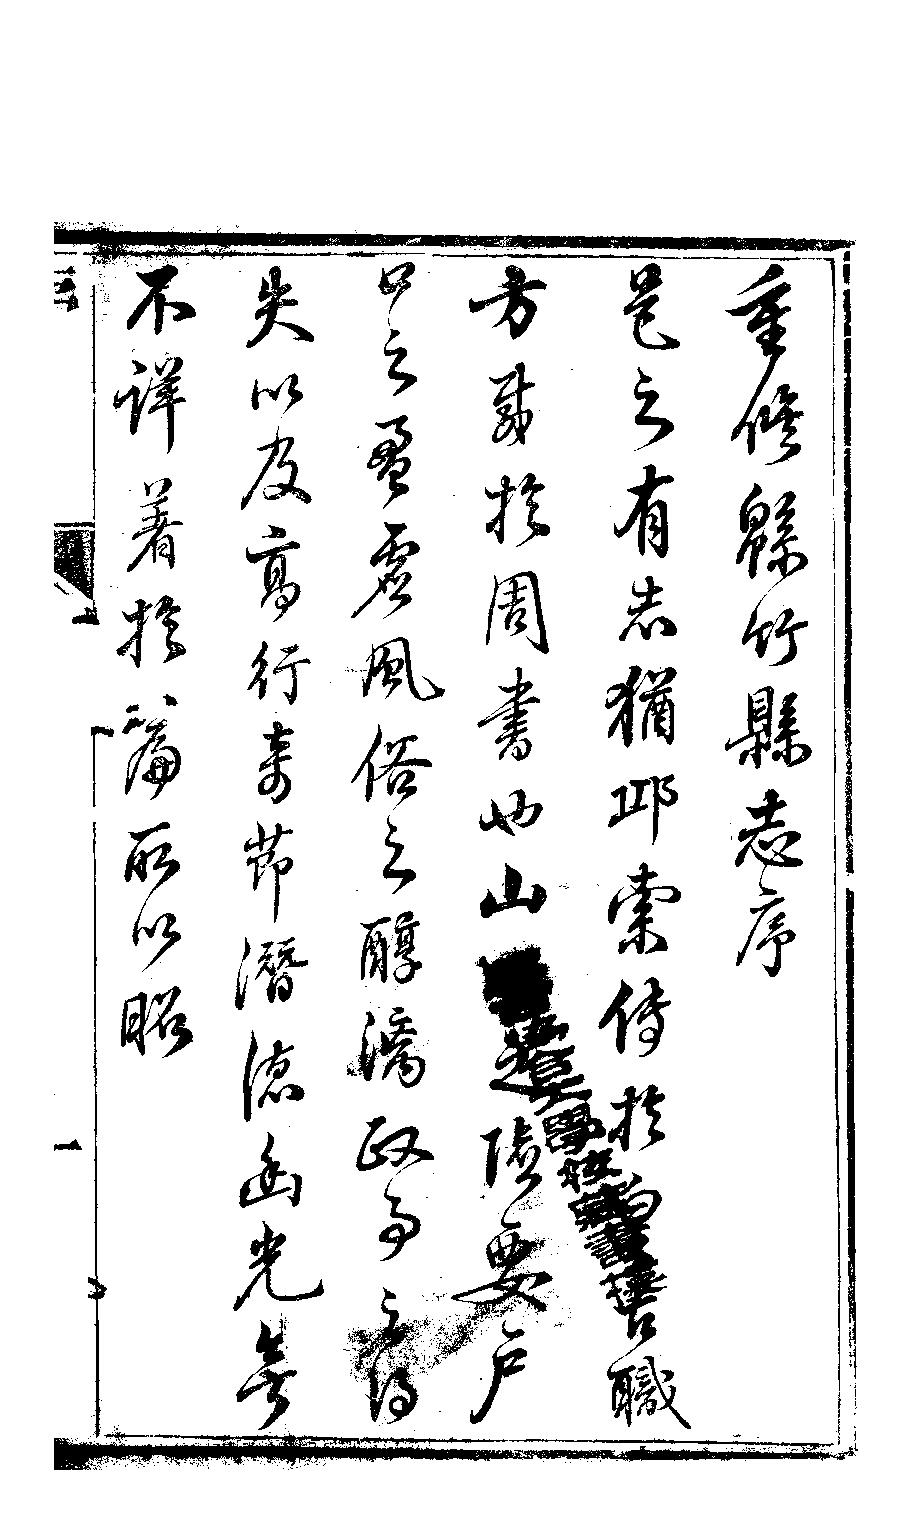 重修緜竹縣志序
邑之有志猶邱索傳於職
方載於周書也山險要戶
口之盈虛風俗之醇漓政事之得
失以及高行奇節潛德幽光無
不詳著於篇所以昭